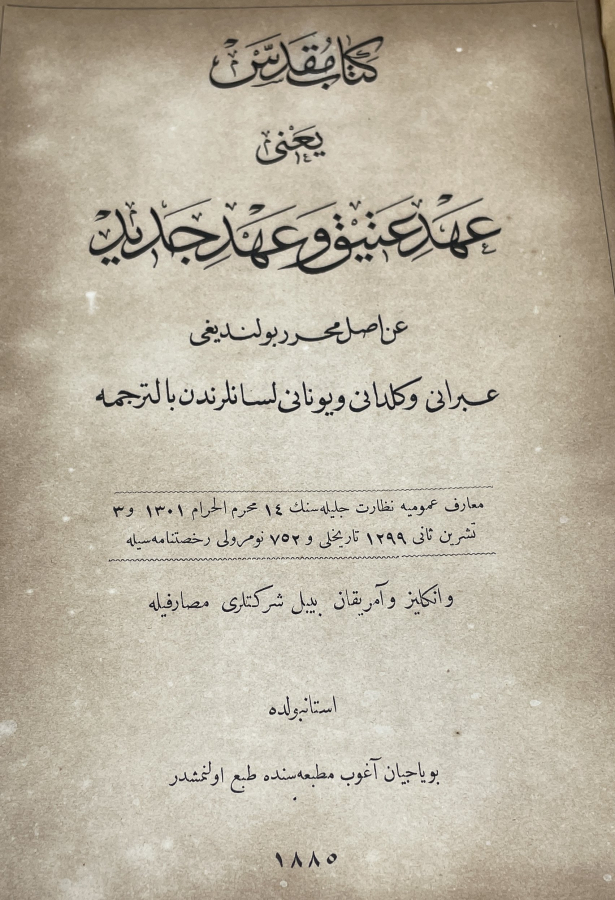 كتاب مقدس
يعنى
عهد عتيق و عهد جديد
عن اصل محرر بولنديغى
عبرانى و كلدانى و يونانى لسانلرندن بالترجمه
معارف عموميه نظارت جليله‌سنك ١٤ محرم الحرام ١٣٠١ و ٣
تشرين ثانى ١٢٩٩ تاريخلى و ٧٥٢ نومرولى رخصتنامه‌سيله
و انكليز و آمريقان بيبل شركتلرى مصارفيله
استانبولده
بوياجيان آغوب مطبعه‌سنده طبع اولنمشدر
١٨٨٥